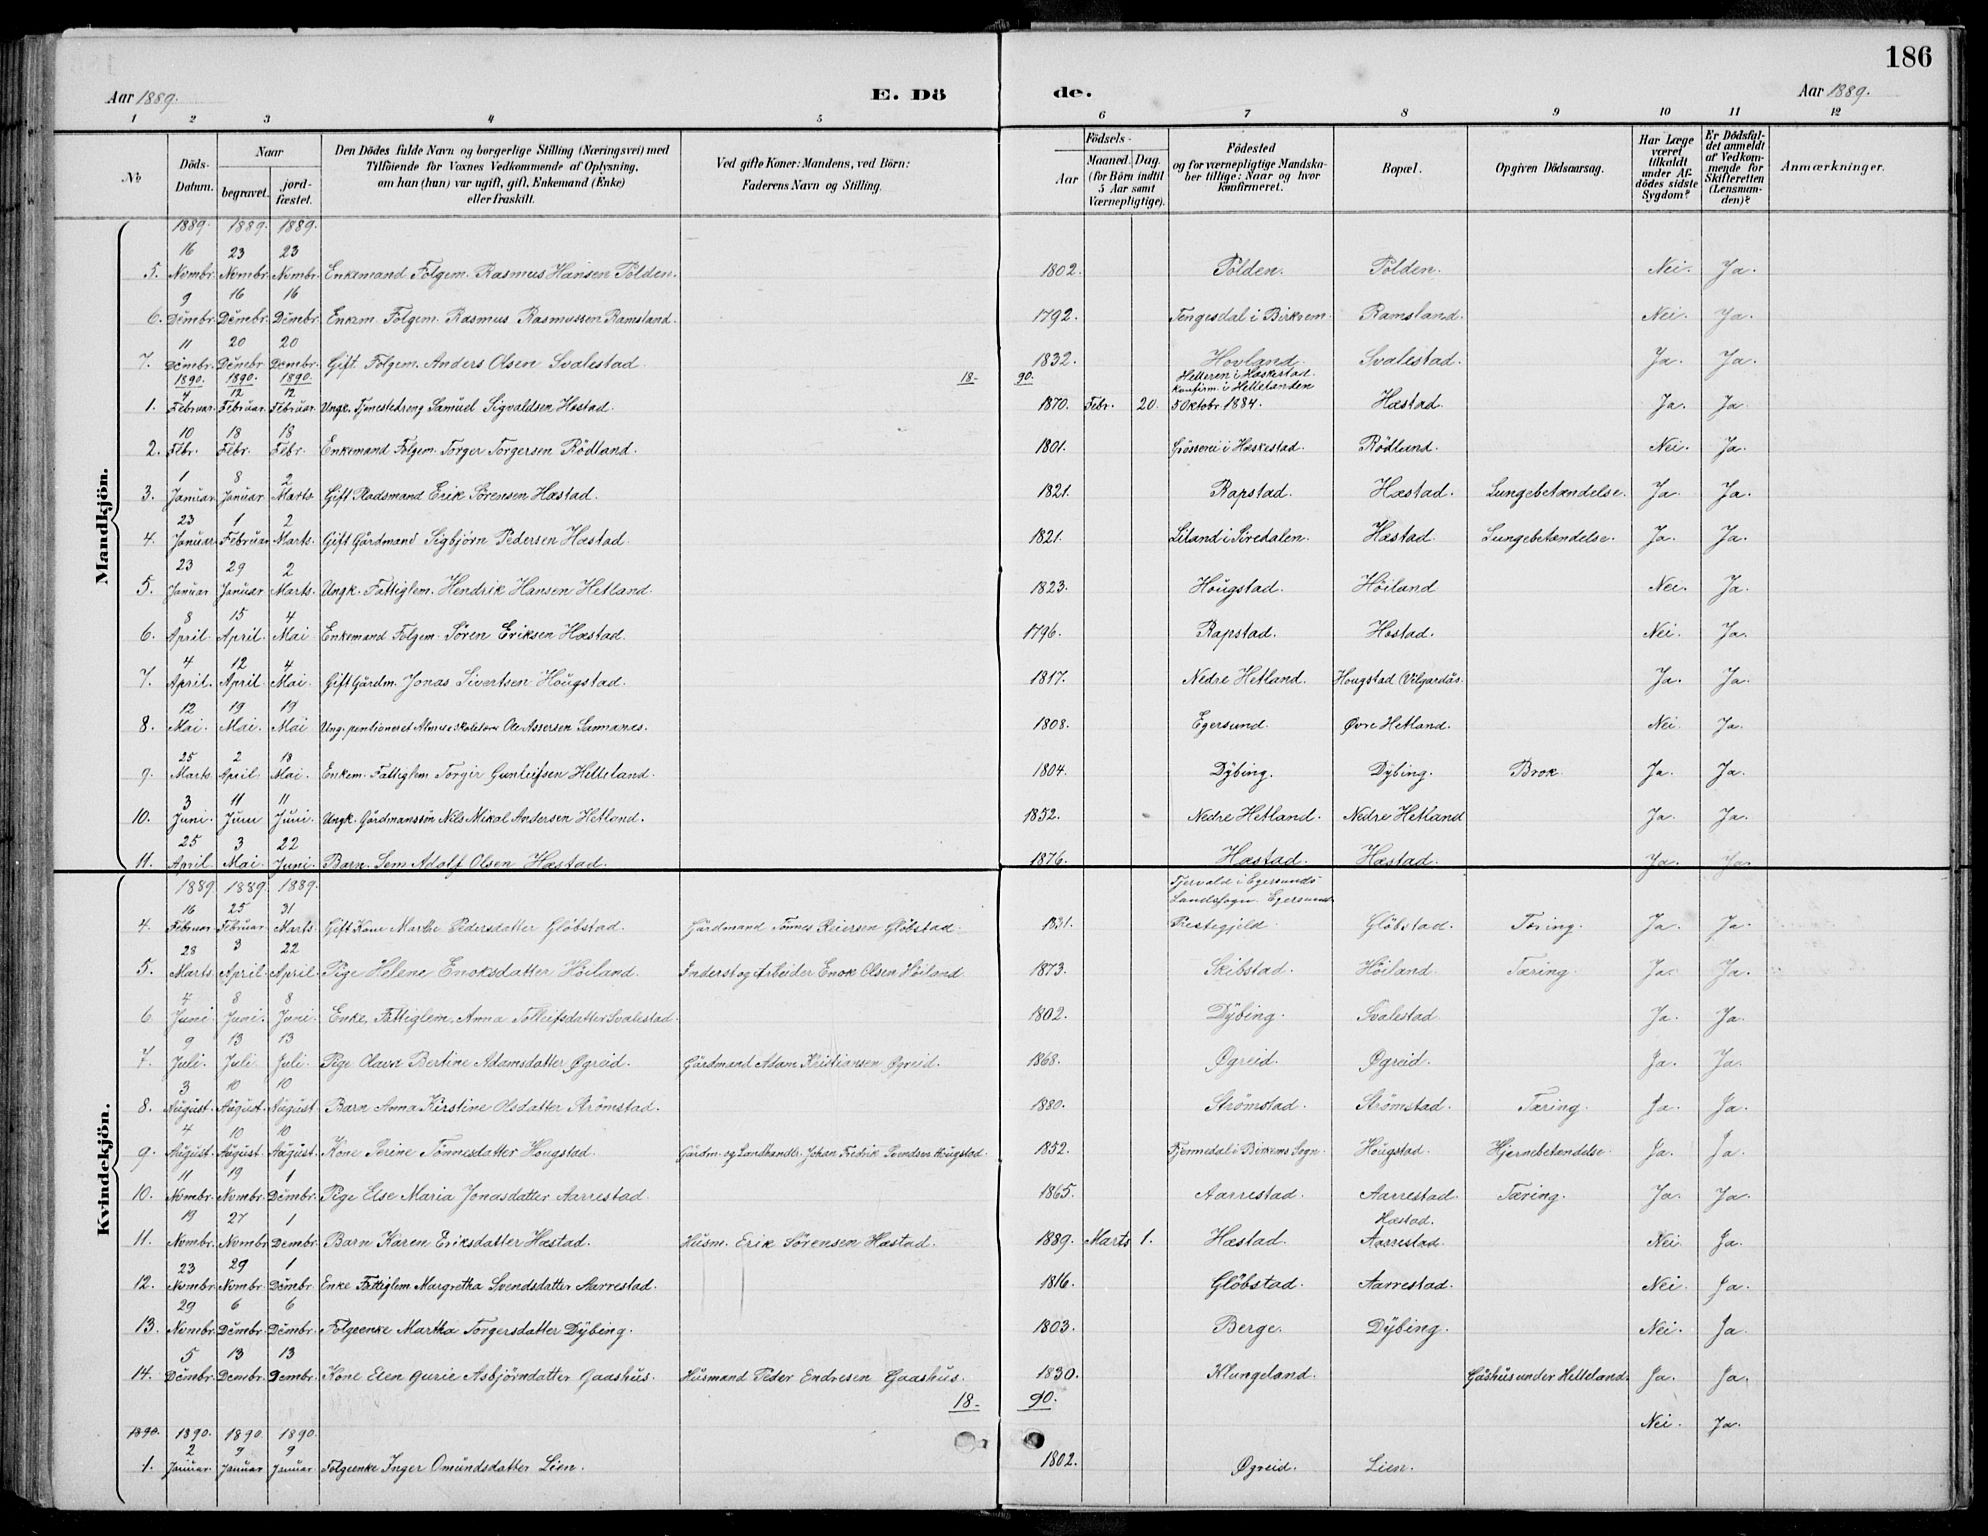 186
Aar 1889.
E. Dö
de.
Aar 1889.
1 2 3 4 5 6 7 8 9 10 11 12
No
Döds-Datum.
Naar
begravet.
jord-fæstet.
Den Dödes fulde Navn og borgerlige Stilling (Næringsvei) med
Tilföiende for Voxnes Vedkommende af Oplysning,
om han (hun) var ugift, gift, Enkemand (Enke)
eller fraskilt.
Ved gifte Koner: Mandens, ved Börn:
Faderens Navn og Stilling.
Födsels-
Aar
Maaned. Dag.
(for Börn indtil
5 Aar samt
Værnepligtige).
Födested
og for værnepligtige Mandska-
ber tillige: Naar og hvor
konfirmeret.
Bopæl.
Opgiven Dödsaarsag.
Har Læge
været
tilkaldt
under Af-
dödes sidste
Sygdom?
Er Dödsfal-
det anmeldt
af Vedkom-
mende for
Skifteretten
(Lensman-
den)?
Anmærkninger.
Mandkjön.
1889. 1889. 1889.
16 23 23
5. Novmbr. Novmbr. Novmbr. Enkemand Folgem. Rasmus Hansen Polden. 1802. Polden. Polden. Nei. Ja.
9 16 16
6. Dcmbr. Dcmbr. Dcmbr. Enkem. Folgem. Rasmus Rasmussen Ramsland. 1792. Tengesdal i Birkrem Ramsland. Nei. Ja.
11 20 20
7. Dcmbr. Dcmbr. Dcmbr. Gift. Folgem. Anders Olsen Svalestad. 1832. Hovland. Svalestad. Ja. Ja.
1890. 1890. 1890. 18- 90. Helleren i Heskestad.
4 12 12 Konfirm. i Hellelanden
1. Februar. Februar. Februar. Ungk. Tjenestedreng Samuel Sigvaldsen Hæstad. 1870. Febr. 20. 5 Oktobr. 1884. Hæstad. Ja. Ja.
10 18 18
2. Febr. Febr. Febr. Enkemand Folgem. Torger Torgersen Rödland. 1801. i Heskestad. Rödland. Nei. Ja.
1 8 2
3. Januar. Januar. Marts. Gift Pladsmand Erik Sörensen Hæstad. 1821. Rapstad. Hæstad. Lungebetændelse. Ja. Ja.
23 1 2
4. Januar. Februar. Marts. Gift Gårdmand Sigbjörn Pedersen Hæstad. 1821. Liland i Siredalen. Hæstad. Lungebetændelse. Ja. Ja.
23 29 2
5. Januar Januar. Marts. Ungk. Fattiglem. Hendrik Hansen Hetland. 1823. Hougstad. Höiland Nei. Ja.
8 15 4
6. April. April. Mai Enkemand Folgem. Sören Eriksen Hæstad. 1796. Rapstad. Hæstad. Nei. Ja.
4 12 4
7. April. April. Mai. Gift Gårdm. Jonas Sivertsen Hougstad. 1817. Nedre Hetland. Hougstad Ja. Ja.
12 19 19
8. Mai. Mai. Mai Ung. pentioneret Almueskolelærer Ole Assersen 1808. Egersund. Øvre Hetland. Nei Ja.
25 2 18
9. Marts April. Mai. Enkem. Fattiglem Torgir Gunleifsen Helleland. 1804. Dybing. Dybing. Brok. Ja. Ja.
3 11 11
10. Juni. Juni Juni. Ungk. Gårdmanssön Nils Mikal Andersen Hetland. 1852. Nedre Hetland. Nedre Hetland Ja. Ja.
25 3 22
11. April Mai. Juni. Barn. Sem Adolf Olsen Hæstad. 1876. Hæstad. Hæstad. Ja. Ja.
Kvindekjön.
1889. 1889. 1889. i Egersunds
16 25 31 Landsfogn. Egersund
4. Februar. Februar. Marts. Gift Kone Marthe Pedersdatter Glöbstad. Gårdmand Tönnes Reiersen Glöbstad. 1831. Prestegjeld. Glöbstad. Tæring. Ja. Ja.
28 3 22
5. Marts. April. April. Pige Helene Enoksdatter Höiland. Inderst og Arbeider Enok Olsen Höiland. 1873. Skibstad. Höiland. Tæring. Ja. Ja.
4 8 8
6 Juni. Juni. Juni. Enke, Fattiglem, Anna Tolleifsdatter Svalestad. 1802. Dybing. Svalestad Ja. Ja.
9 13 13
7. Juli. Juli. Juli. Pige Olava Bertine Adamsdatter Øgreid. Gårdmand Adam Kristiansen Øgreid. 1868. Øgreid. Øgreid. Ja. Ja.
3 10 10
8. August. August. August. Barn Anna Kirstine Olsdatter Strömstad. 1880. Strömstad. Strömstad. Tæring. Ja. Ja.
4 10 10
9. August. August. August. Kone Serine Tönnesdatter Hougstad. Gårdm. og Landhandlr. Johan Fredrik Svendsen Hougstad. 1852. i Birkrems Sogn. Hougstad. Hjernebetændelse. Ja. Ja.
11 19 1
10. Novmbr. Novmbr. Dcmbr. Pige Else Maria Jonasdatter Aarrestad. 1865. Aarrestad. Aarrestad. Tæring. Ja. Ja.
19 27 1 Hæstad.
11. Novmbr. Novmbr. Dcmbr. Barn Karen Eriksdatter Hæstad. Husm. Erik Sörensen Hæstad. 1889. Marts 1. Hæstad. Aarrestad. Nei Ja.
23 29 1
12. Novmbr. Novmbr. Dcmbr. Enke Fattiglem Margretha Svendsdatter Aarrestad. 1816. Glöbstad. Aarrestad. Nei. Ja.
29 6 6
13. Novmbr. Dcmbr. Dcmbr. Folgeenke Martha Torgersdatter Dybing. 1803. Berge. Dybing. Nei. Ja.
5 13 13
14. Dcmbr. Dcmbr. Dcmbr. Kone Elen Gurie Asbjörndatter Gaashus. Husmand Peder Endresen Gaashus. 1830. Klungeland. Gåshus under Helleland. Ja. Ja.
18- 90.
Nei. Ja.
1890. 1890. 1890. 1890.
2 9 9
1. Januar. Januar Januar Folgeenke Inger Omundsdatter Lien. 1802. Øgreid. Lien.